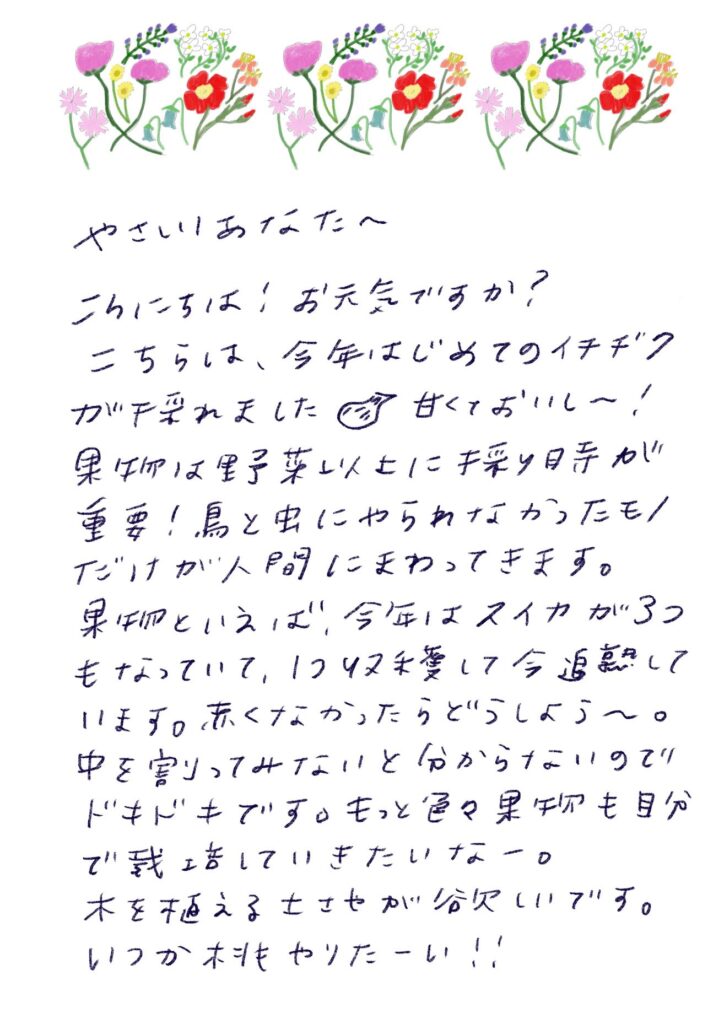 やさしいあなたへ
こんにちは！お元気ですか？
こちらは、今年はじめてのイチヂク
が採れました 甘くておいし〜！
果物は野菜以上に採り時が
重要！鳥と虫にやられなかったモノ
だけが人間にまわってきます。
果物といえば、今年はスイカが3つ
もなっていて、1つ収穫して今追熟して
います。赤くなかったらどうしよう〜。
中を割ってみないと分からないので
ドキドキです。もっと色々果物も自分
で栽培していきたいなー。
木を植える土地が欲しいです。
いつか桃もやりたーい！！